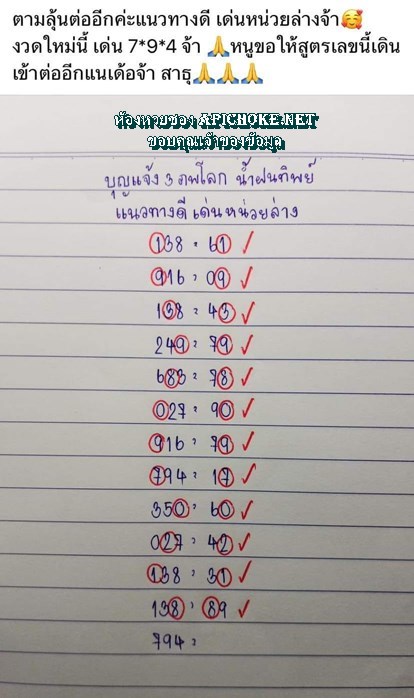 ตามลุ้นต่ออีกค่ะแนวทางดี เด่นหน่วยล่างจ้า🥰
งวดใหม่นี้ เด่น 7*9*4 จ้า 🙏หนูขอให้สูตรเลขนี้เดิน
เข้าต่ออีกแนเด้อจ้า สาธุ🙏🙏🙏
ห้องหวยซอง APICHOKE.NET
ขอบคุณเจ้าของข้อมูล
บุญแจ้ง 3 ภพโลก น้ำฝนทิพย์
แนวทางดี เด่นหน่วยล่าง
138 = 61 ✓
916 = 09 ✓
138 = 43 ✓
249 = 79 ✓
683 = 78 ✓
027 = 90 ✓
916 = 79 ✓
794 = 17 ✓
350 = 60 ✓
027 = 42 ✓
138 = 31 ✓
138 = 89 ✓
794 =